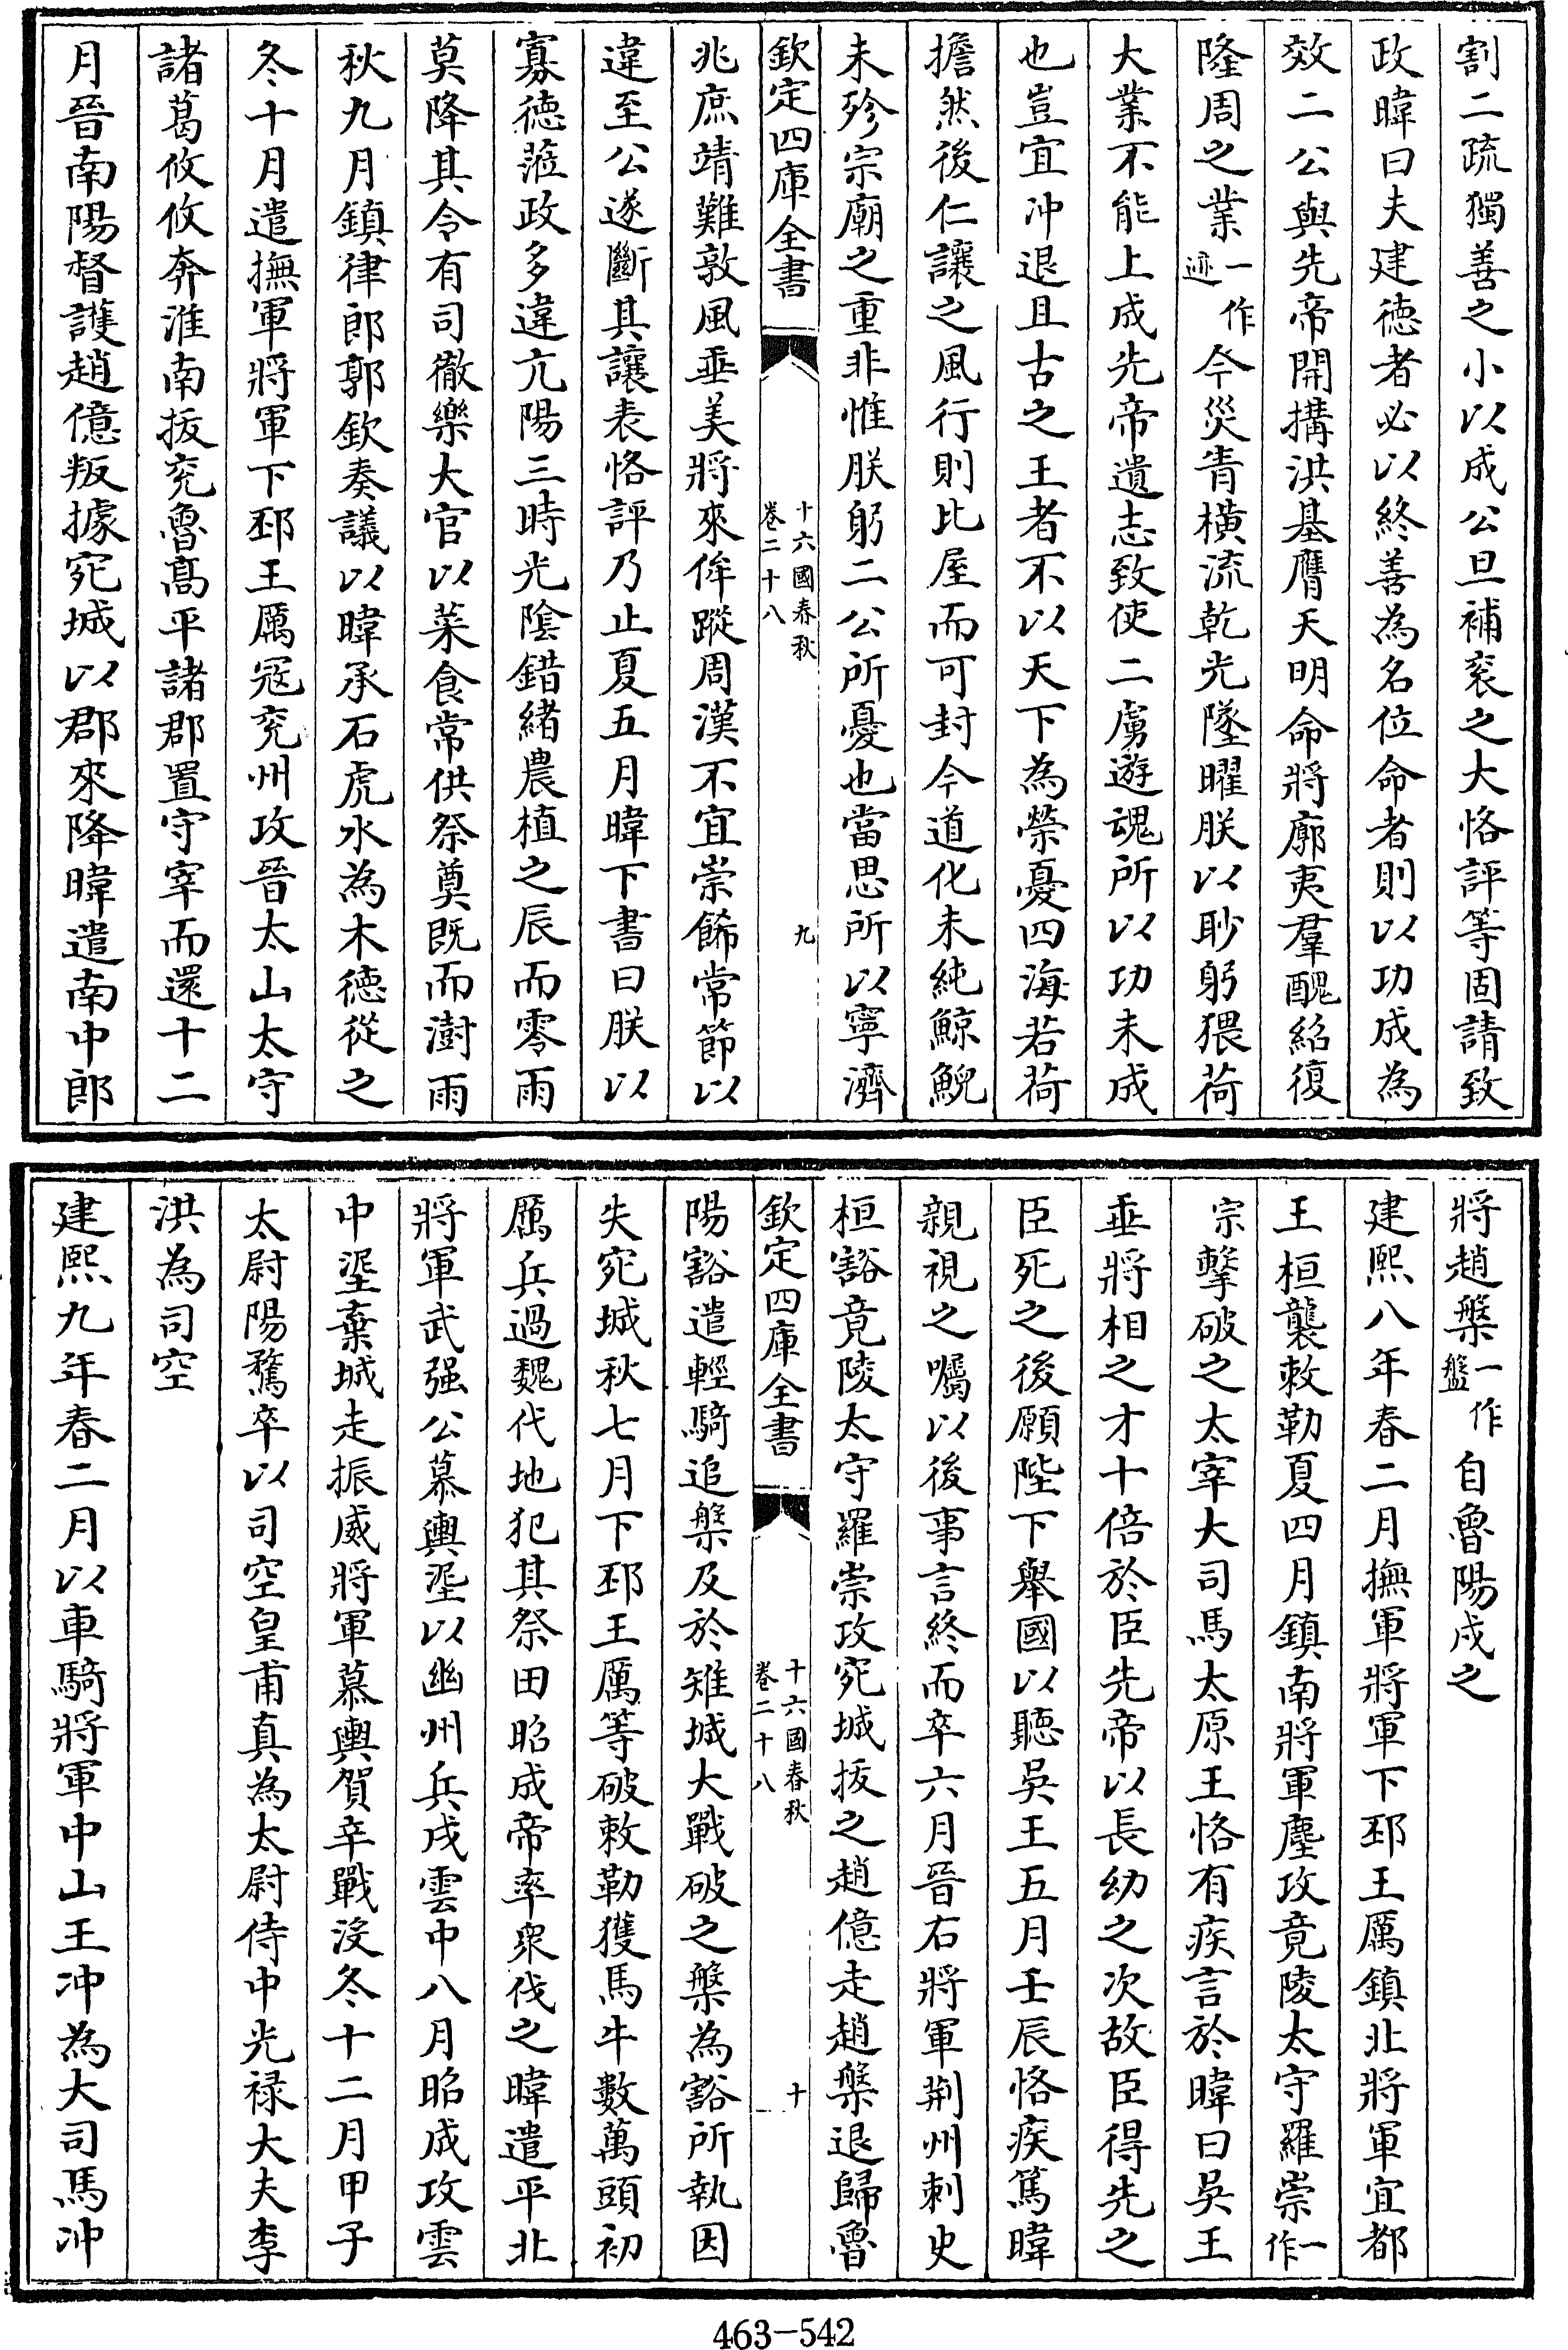 割二疏獨善之小以成公旦補衮之大恪評等固請致
政暐曰夫建德者必以終善為名位命者則以功成為
效二公與先帝開搆洪基膺天明命將廓夷羣醜紹復
隆周之業一作迹今災眚橫流乾光墜曜朕以眇躬猥荷
大業不能上成先帝遺志致使二虜遊魂所以功未成
也豈宜冲退且古之王者不以天下為榮憂四海若荷
擔然後仁讓之風行則比屋而可封今道化未純鯨鯢
未殄宗廟之重非惟朕躬二公所憂也當思所以寧濟
欽定四庫全書
十六國春秋
卷二十八
九
兆庶靖難敦風垂美將來侔蹤周漢不宜崇飾常節以
違至公遂斷其讓表恪評乃止夏五月暐下書曰朕以
寡德蒞政多違亢陽三時光陰錯緒農植之辰而零雨
莫降其令有司徹樂大官以菜食常供祭奠既而澍雨
秋九月鎮律郎郭欽奏議以暐承石虎水為木德從之
冬十月遣撫軍將軍下邳王厲寇兖州攻晉太山太守
諸葛攸攸奔淮南拔兖魯高平諸郡置守宰而還十二
月晉南陽督護趙億叛據宛城以郡來降暐遣南中郎
將趙槃一作盤自魯陽戍之
建熙八年春二月撫軍將軍下邳王厲鎮北將軍宜都
王桓襲敕勒夏四月鎮南將軍塵攻竟陵太守羅崇一作
宗擊破之太宰大司馬太原王恪有疾言於暐曰吳王
垂將相之才十倍於臣先帝以長幼之次故臣得先之
臣死之後願陛下舉國以聽吳王五月壬辰恪疾篤暐
親視之囑以後事言終而卒六月晉右將軍荆州刺史
桓豁竟陵太守羅崇攻宛城拔之趙億走趙槃退歸魯
欽定四庫全書
十六國春秋
卷二十八
十
陽豁遣輕騎追槃及於雉城大戰破之槃為豁所執因
失宛城秋七月下邳王厲等破敕勒獲馬牛數萬頭初
厲兵過魏代地犯其祭田昭成帝率衆伐之暐遣平北
將軍武强公慕輿埿以幽州兵戍雲中八月昭成攻雲
中埿棄城走振威將軍慕輿賀辛戰没冬十二月甲子
太尉陽騖卒以司空皇甫真為太尉侍中光禄大夫李
洪為司空
建熙九年春二月以車騎將軍中山王冲為大司馬冲
463-542